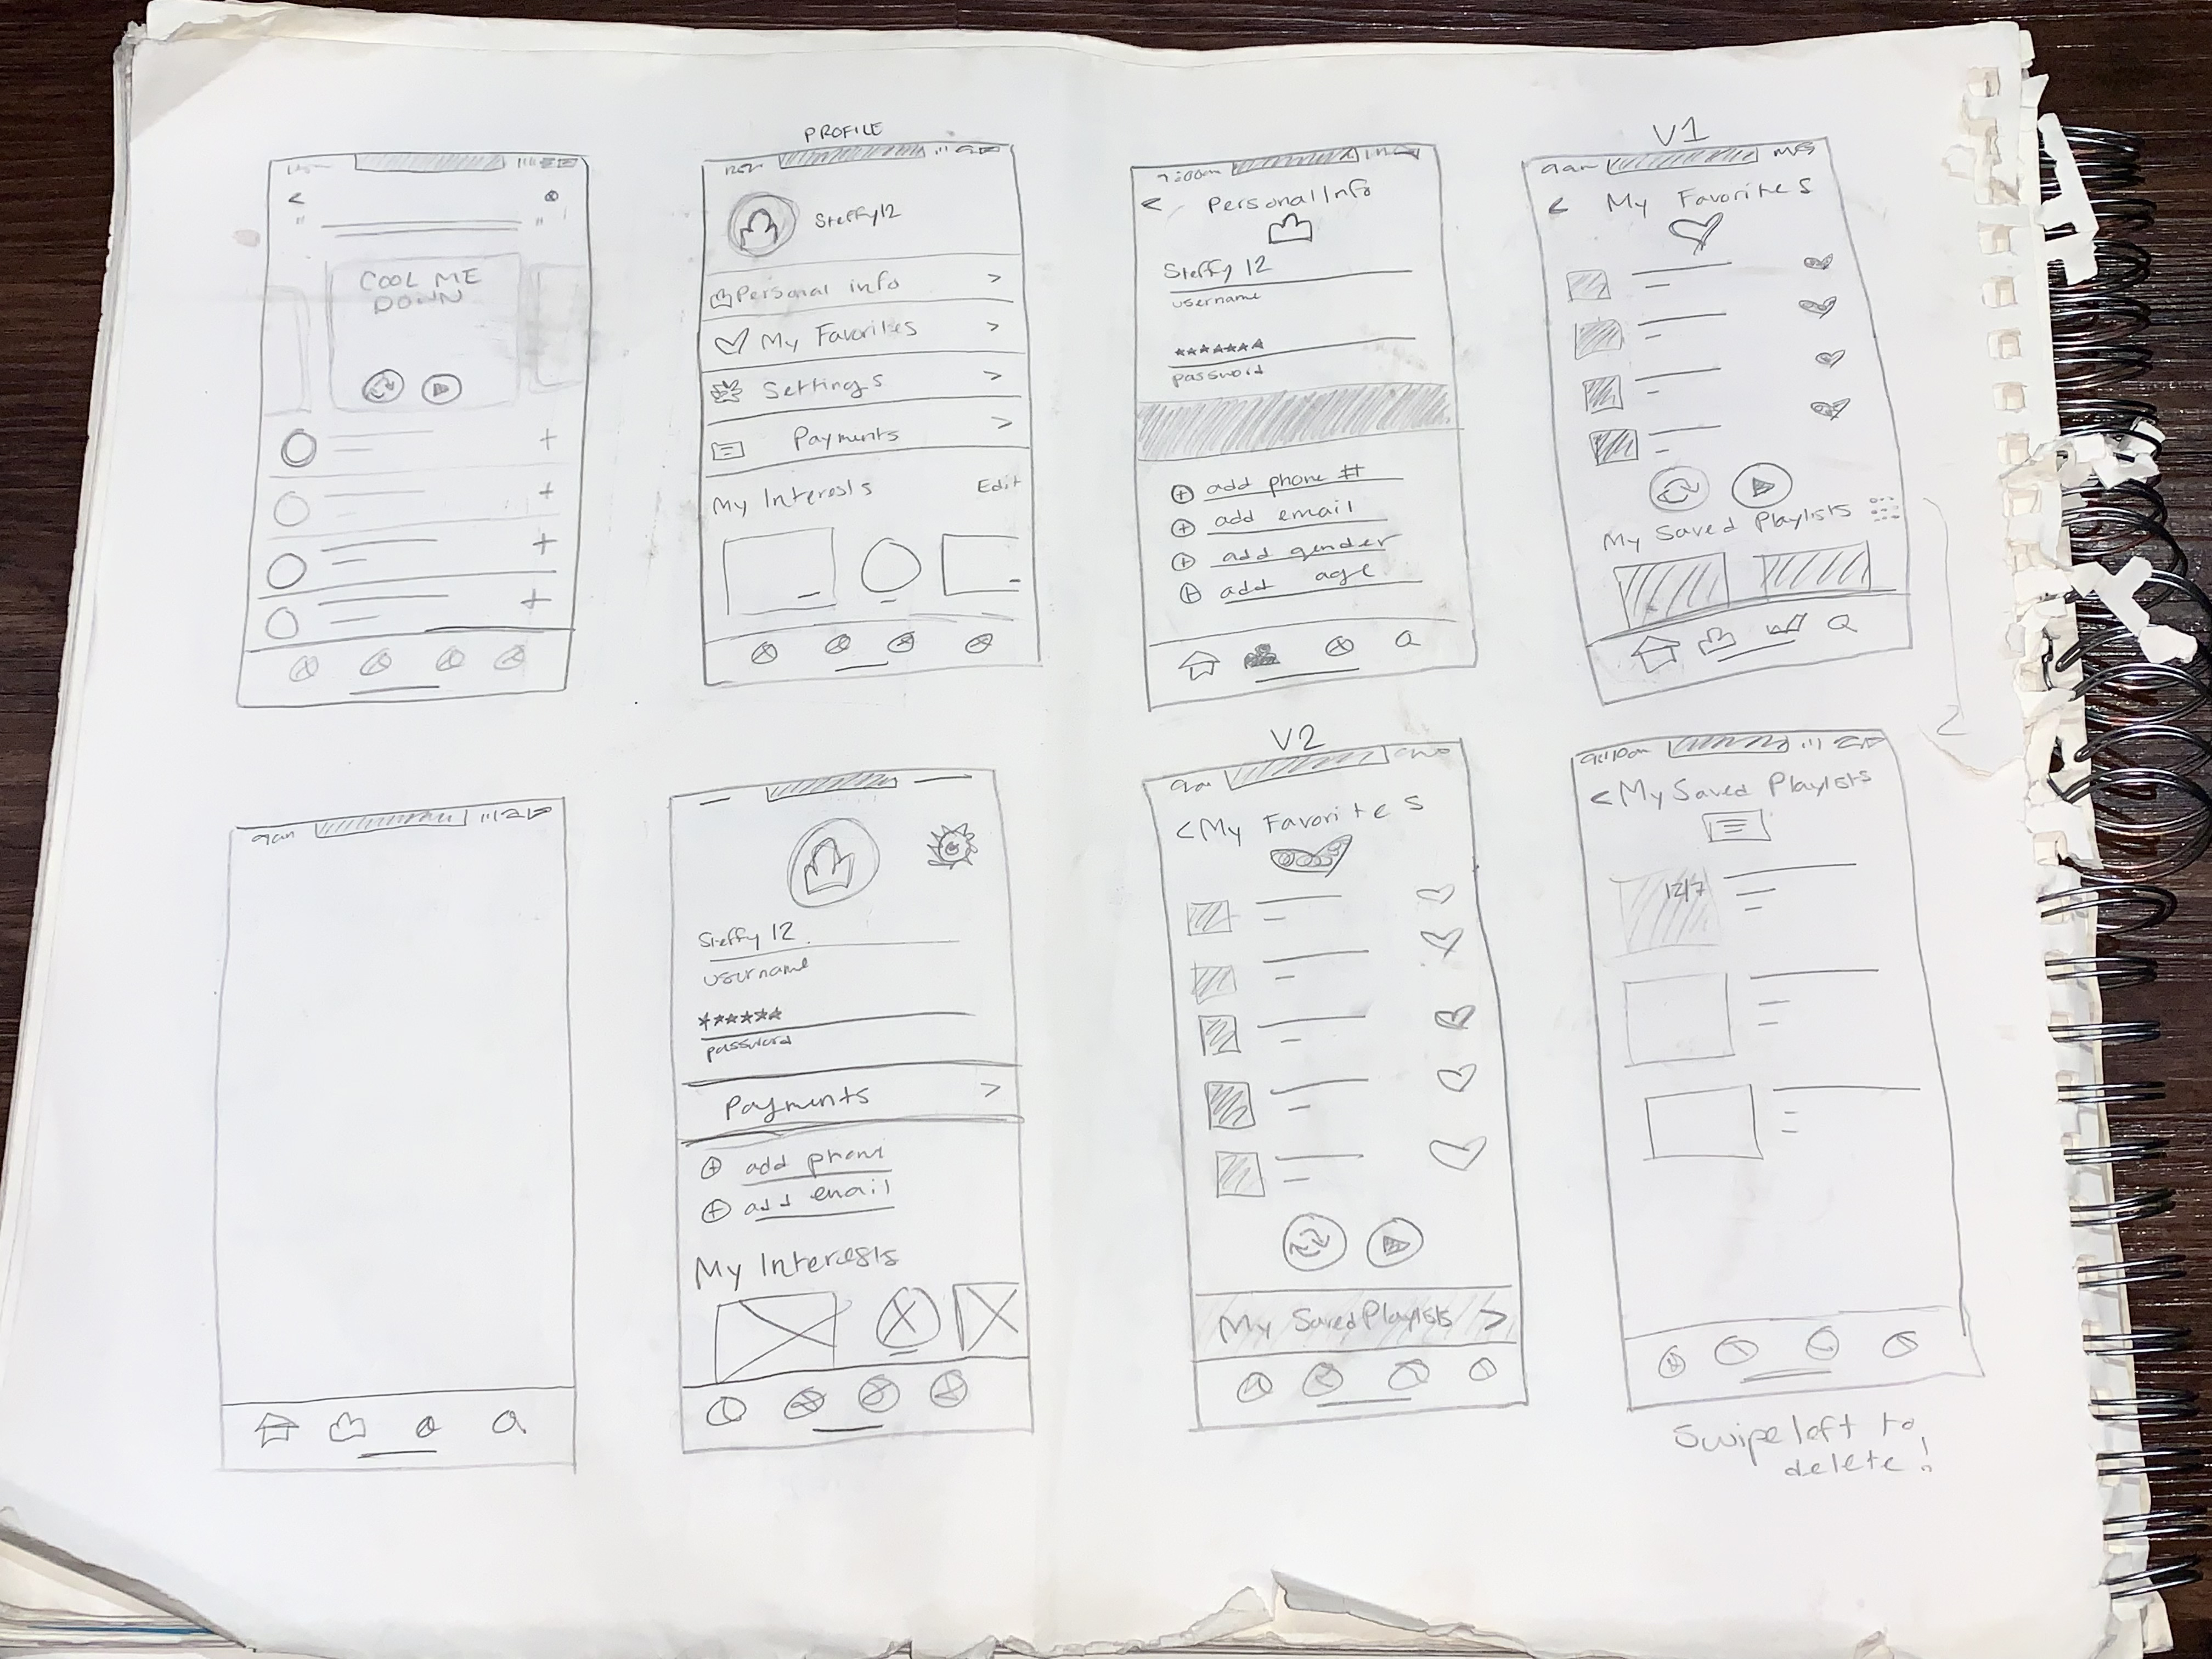 COOL ME
DOWN
PROFILE
Steffy12
Personal info >
My Favorites >
Settings >
Payments >
My Interests Edit
9:00am
< Personal Info
Steffy 12
username
*******
password
add phone #
add email
add gender
add age
V1
9am
< My Favorites
My Saved Playlists
9am
Steffy 12
username
******
password
Payments >
add phone
add email
My Interests
V2
9am
<My Favorites
My Saved Playlists >
9:10am
<My Saved Playlists
Swipe left to
delete!